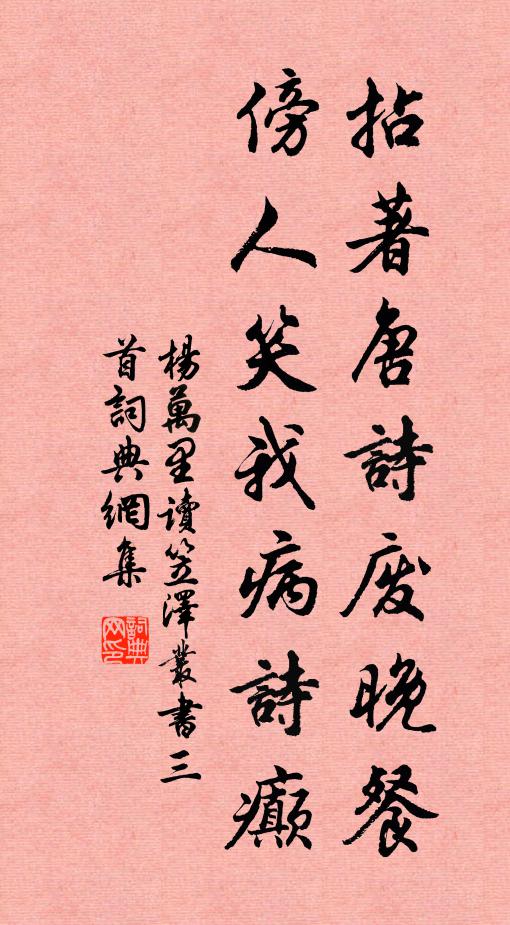 拈著唐詩废晚餐
傍人笑我病詩癲
楊萬里讀笠澤叢書三
首詞典網集
詞典網印